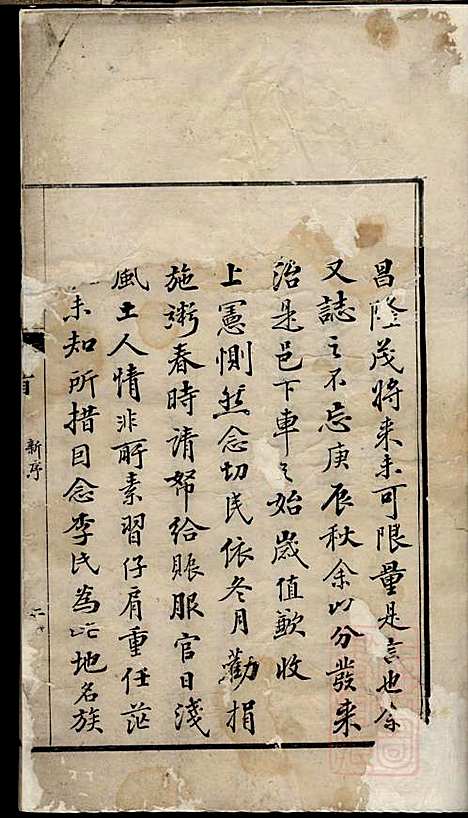 昌隆茂將來未可限量是言也余
又誌之不忘庚辰秋余以分發来
治是邑下車之始嵗值歉收
上憲惻然念切民依冬月勸捐
施粥春時請帑給賑服官日淺
風土人情非所素習仔肩重任茫
未知所措因念李氏為此地名族
新序